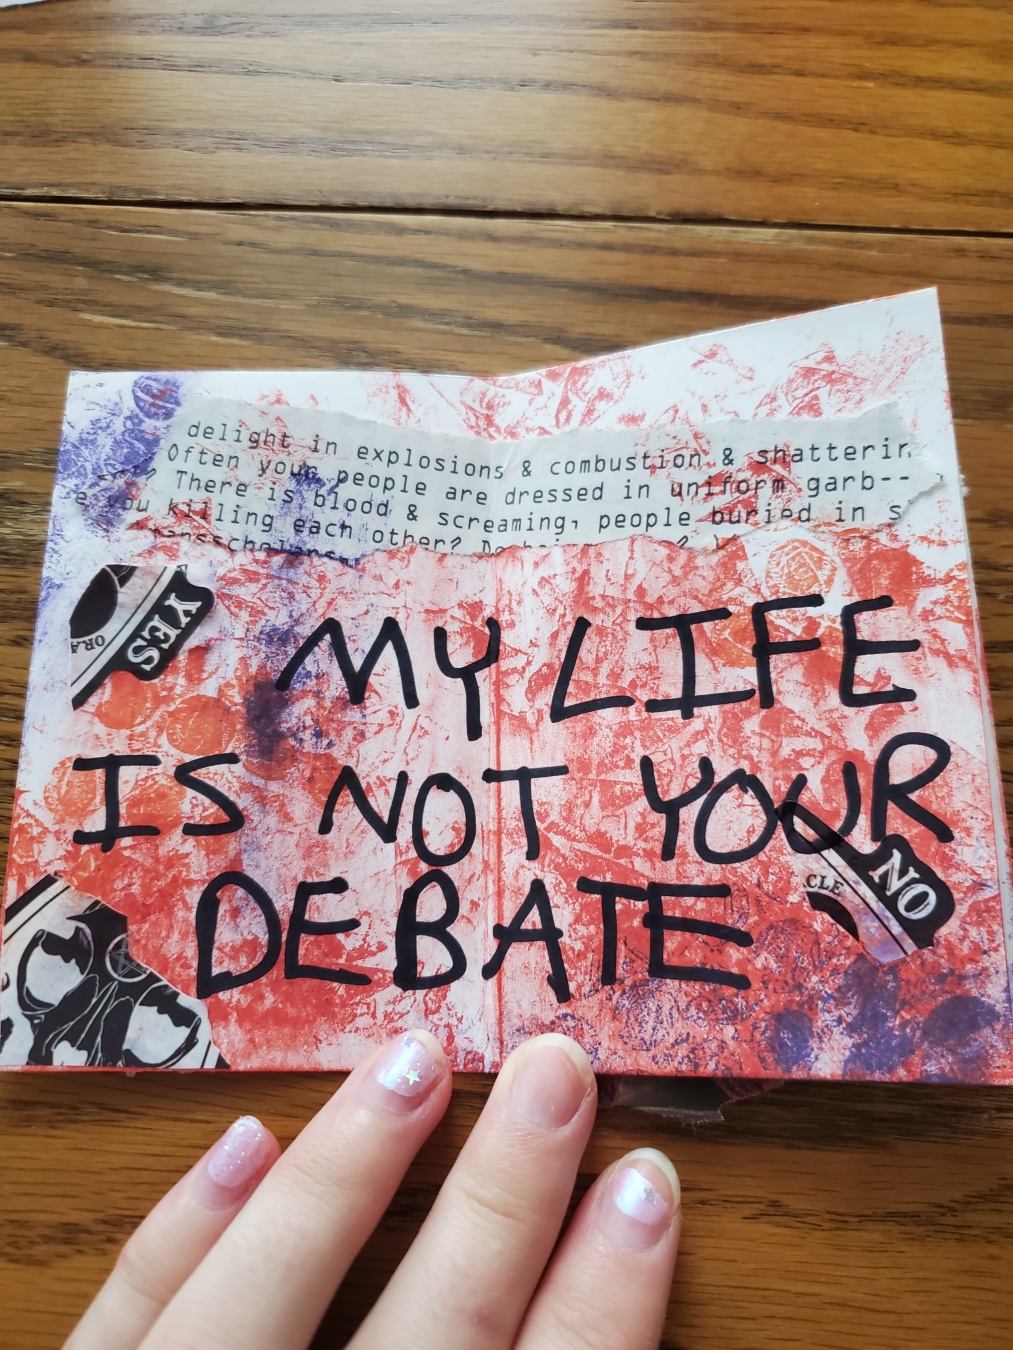 delight in explosions & combustion & shatterin
Often your people are dressed in uniform garb--
? There is blood & screaming, people buried in s
you killing each other?
YES
ORA
MY LIFE
IS NOT YOUR
DEBATE
NO
CLE